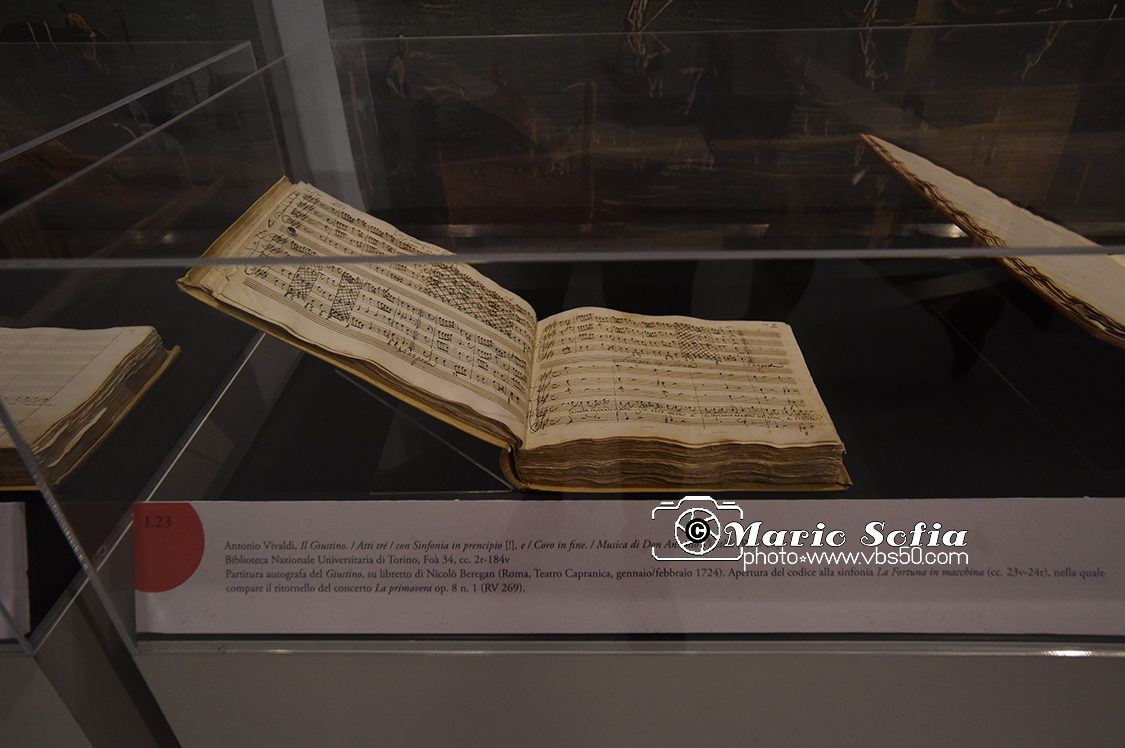 I.23
Antonio Vivaldi, Il Giustino. / Atti tré / con Sinfonia in prencipio [!], e / Coro in fine. / Musica di Don
Biblioteca Nazionale Universitaria di Torino, Foà 34, cc. 2r-184v
Partitura autografa del Giustino, su libretto di Nicolò Beregan (Roma, Teatro Capranica, gennaio/febbraio 1724). Apertura del codice alla sinfonia La Fortuna in macchina (cc. 23v-24r), nella quale
compare il ritornello del concerto La primavera op. 8 n. 1 (RV 269).
© Mario Sofia
photo★www.vbs50.com